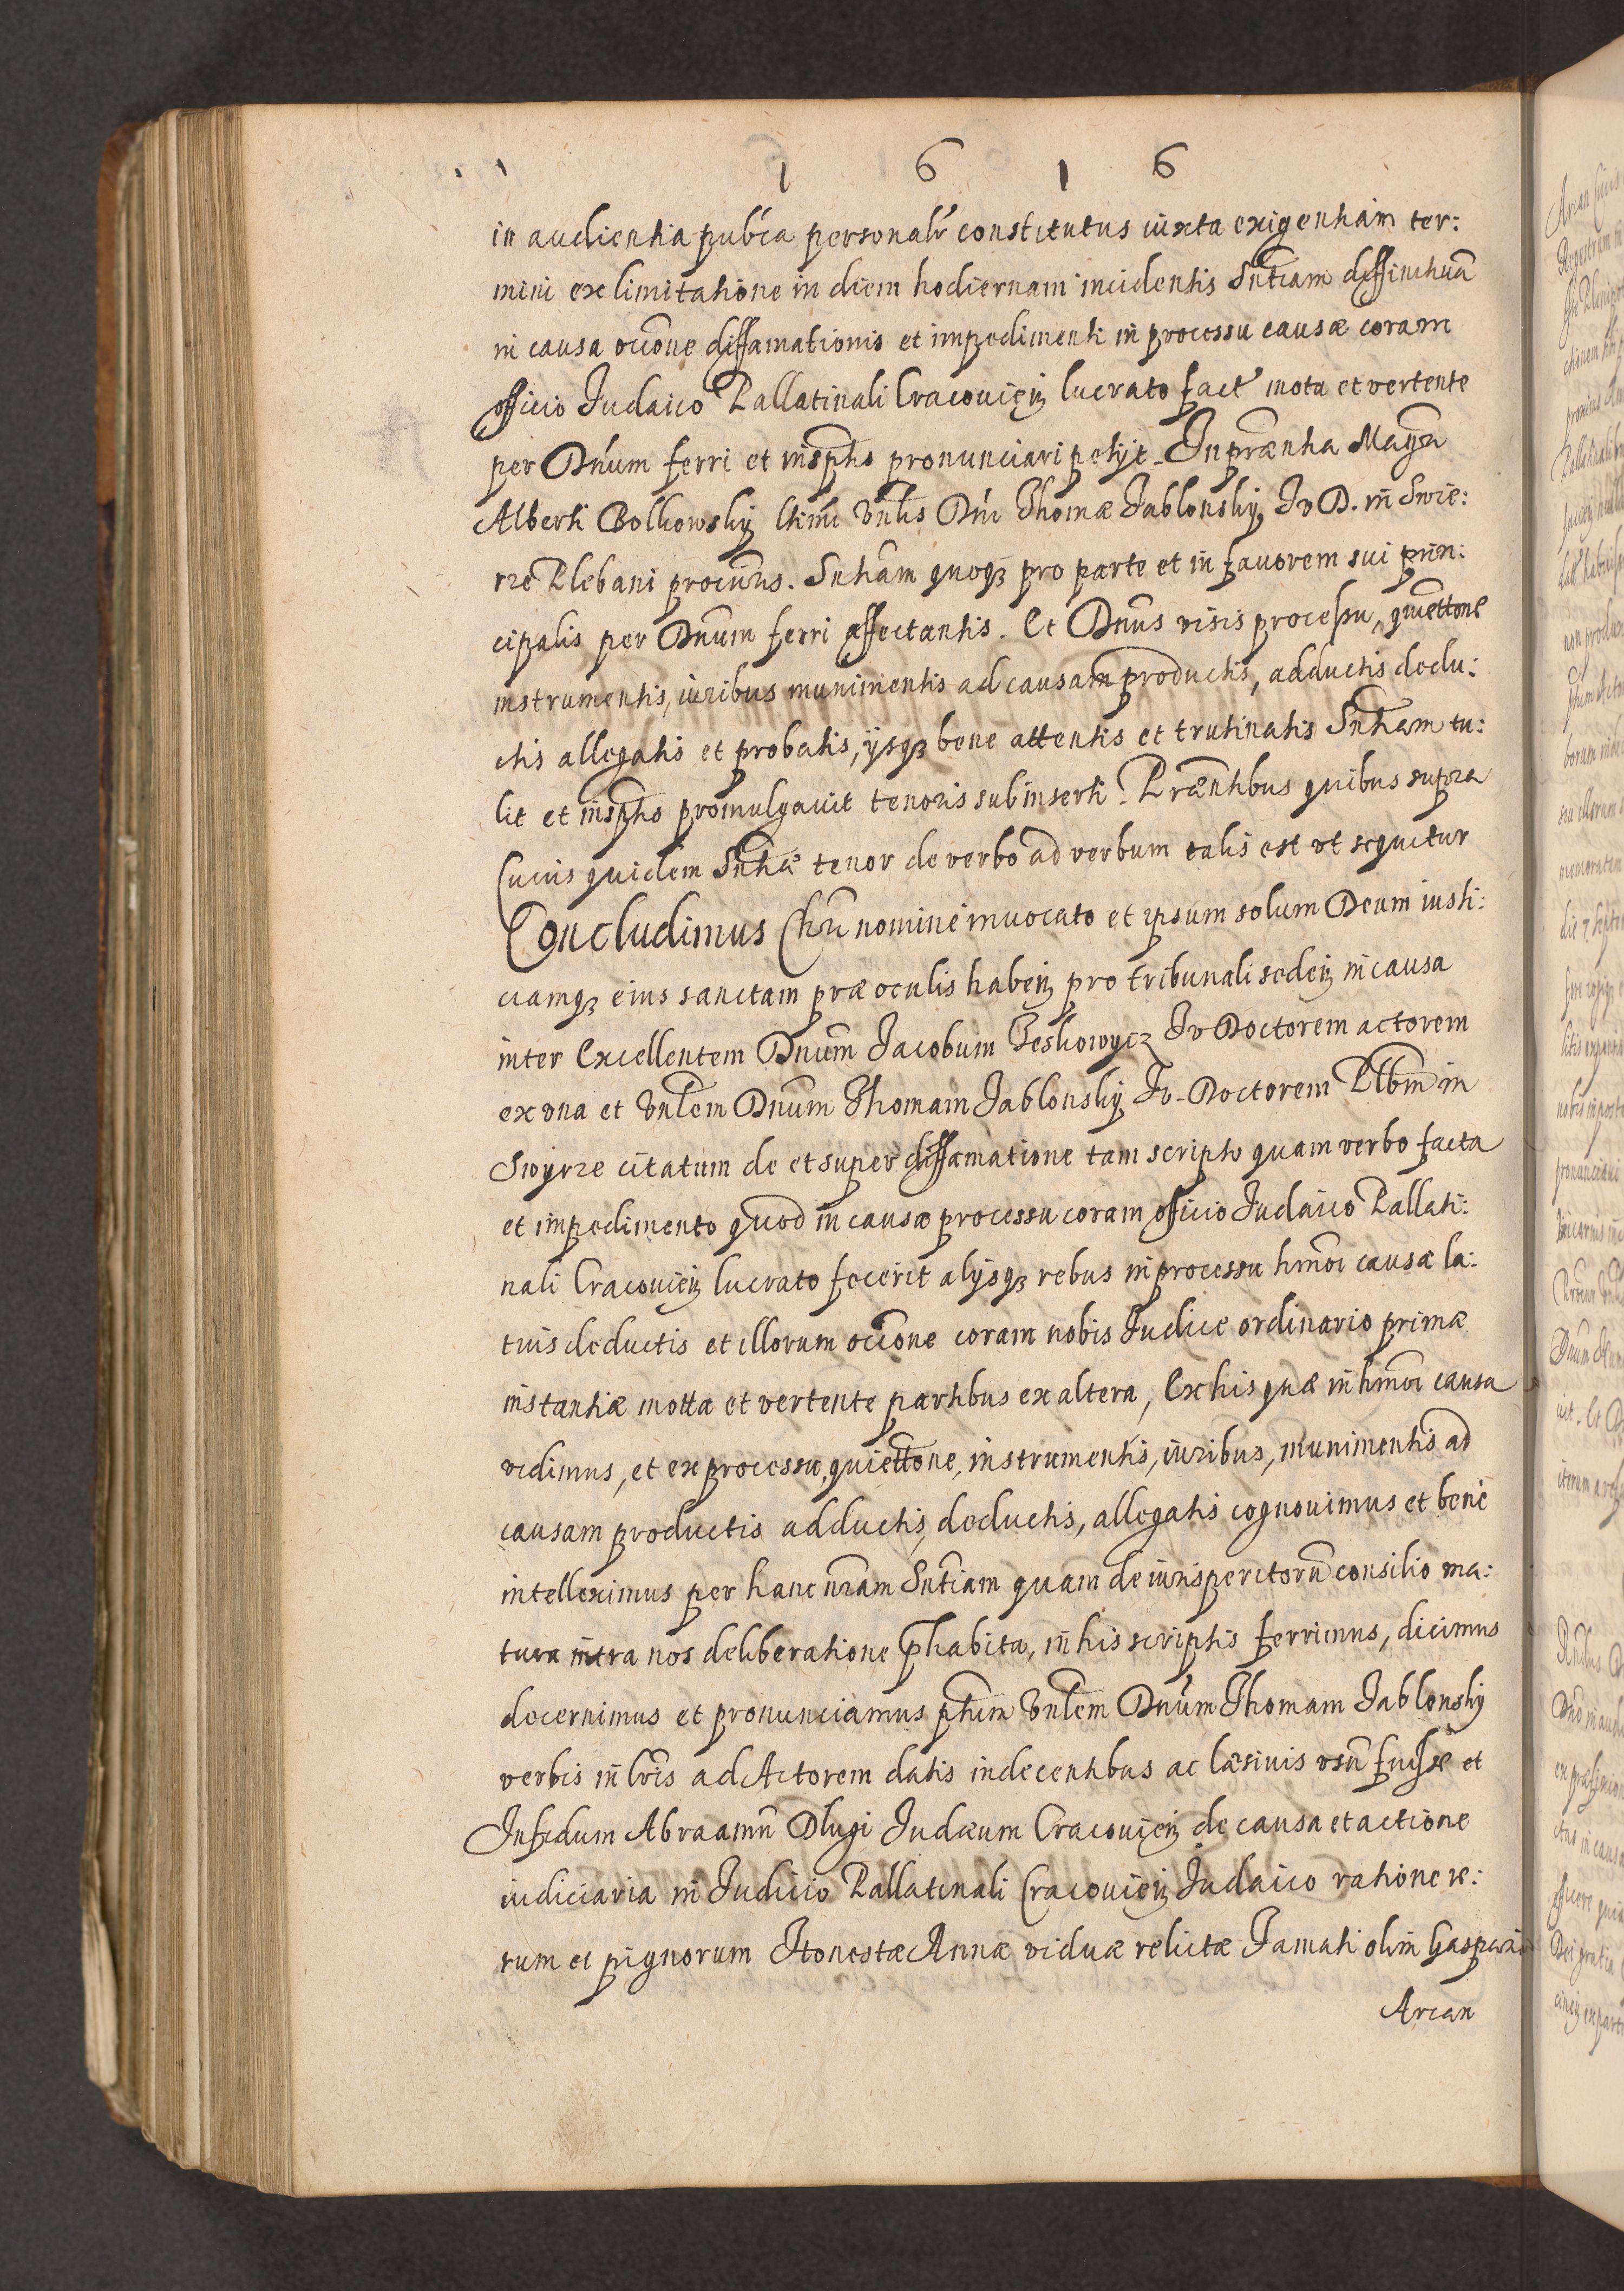 1 6 1 6
in audientia pub'ca personalr constitutus iuxta exigentiam ter:
mini ex limitatione in diem hodiernam incidentis Sntiam diffinitiuã
in causa occõne diffamationis et impedimenti in processu causæ coram
officio Iudaico Pallatinali Cracouieñ lucrato fact mota et vertente
per Dnum ferri et inscptis pronunciari petijt. In præntia Magra
Alberti Bolkowskÿ ltimi Vnlis Dni Thomæ Iablonskÿ Iv D. in Swie:
rze Plebani procuris. Sntiam quoqꝫ pro parte et in fauorem sui prin:
cipalis per Dnum ferri affectantis. Et Dnus visis processu, quiettone
instrumentis, iuribus munimentis ad causam productis, adductis dedu:
ctis allegatis et probatis, ijsqꝫ bene attentis et trutinatis Sntiam tu:
lit et inscptis promulgauit tenoris subinserti. Præntibus quibus supra
Cuius quidem Sntiæ tenor de verbo ad verbum talis est vt sequitur
Concludimus Chri nomine inuocato et ipsum solum Deum iusti:
ciamqꝫ eius sanctam præ oculis habeñ pro tribunali sedeñ in causa
inter Excellentem Dnum Iacobum Teskowycz Iv Doctorem actorem
ex vna et Vnlem Dnum Thomam Iablonskÿ Iv. Doctorem Plbm in
Swyrze citatum de et super diffamatione tam scripto quam verbo facta
et impedimento quod in causæ processu coram officio Iudaico Pallati:
nali Cracouieñ lucrato fecerit alijsqꝫ rebus in processu hmõi causæ la:
tius deductis et illorum occõne coram nobis Iudice ordinario primæ
instantiæ motta et vertente partibus ex altera, Ex his quæ in hmõi causa
vidimus, et ex processu, quiettone, instrumentis, iuribus, munimentis ad
causam productis adductis, deductis, allegatis cognouimus et bene
intelleximus per hanc nram Sntiam quam de iurisperitorũ consilio ma:
tura intra nos deliberatione phabita, in his scriptis ferrimus, dicimus
decernimus et pronunciamus ptum Vnlem Dnum Thomam Iablonskÿ
verbis in lris ad Actorem datis indecentibus ac læsiuis vsũ fuisse et
Infidum Abraamũ Dlugi Iudæum Cracouieñ de causa et actione
iudiciaria in Iudicio Pallatinali Cracouieñ Iudaico ratione re:
rum et pignorum Honestæ Annæ viduæ relictæ Famati olim Gasparis
Arcan